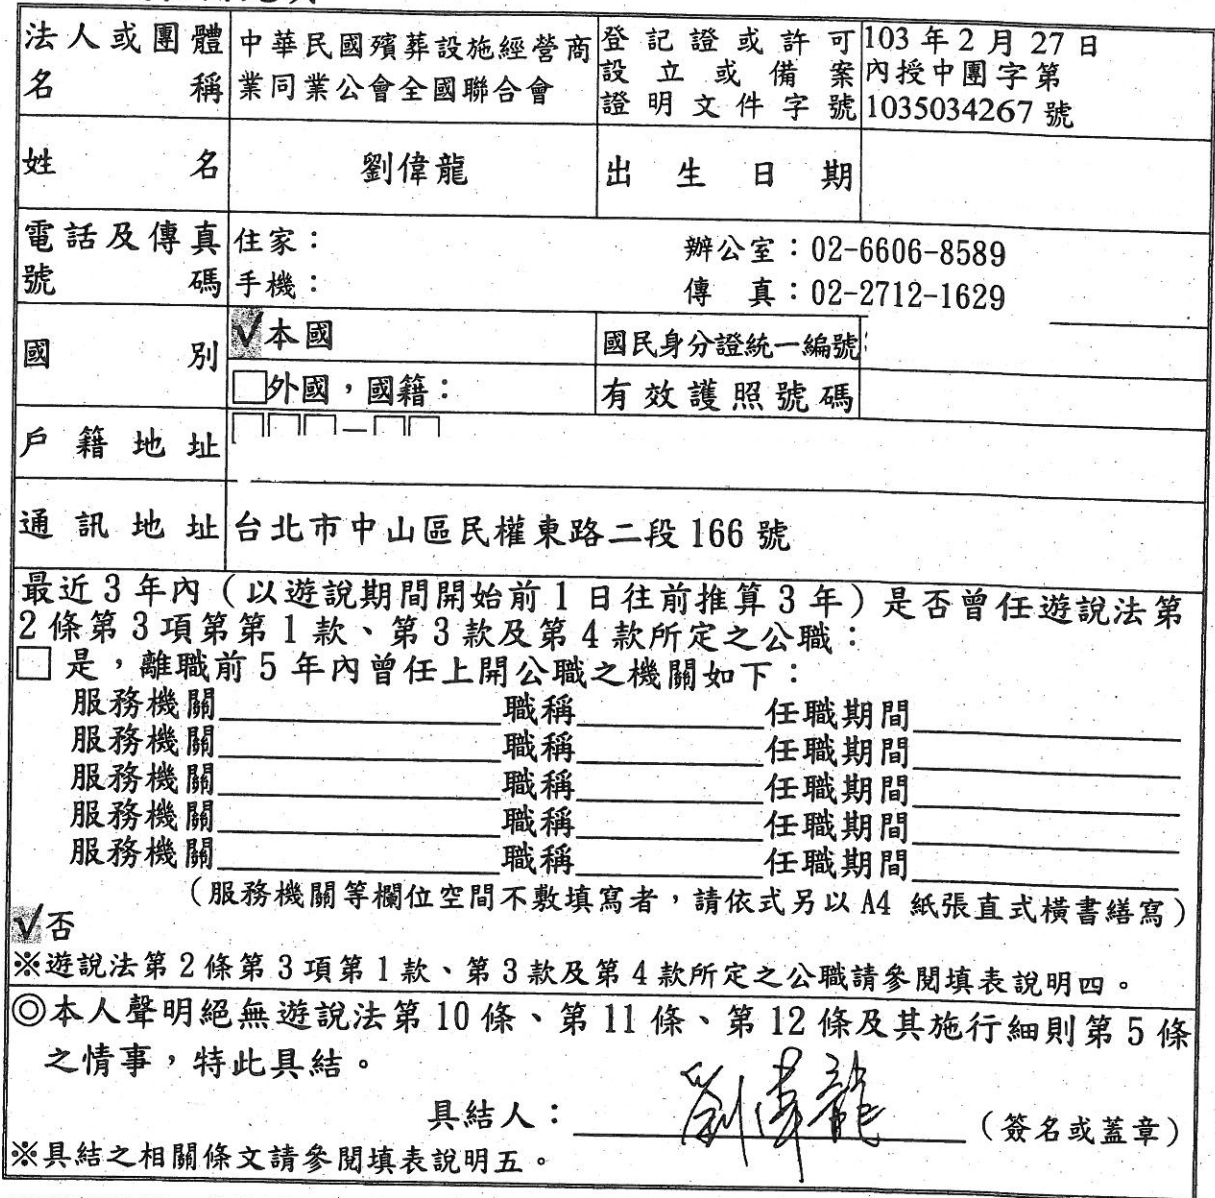 法人或團體名稱 中華民國殯葬設施經營商業同業公會全國聯合會 登記證或許可設立或備案證明文件字號 103年2月27日內授中團字第1035034267號
姓名 劉偉龍 出生日期
電話及傳真號碼 住家： 辦公室：02-6606-8589
手機： 傳真：02-2712-1629
國別 √本國 國民身分證統一編號
□外國，國籍： 有效護照號碼
戶籍地址 □□□－□□
通訊地址 台北市中山區民權東路二段166號
最近3年內（以遊說期間開始前1日往前推算3年）是否曾任遊說法第
2條第3項第第1款、第3款及第4款所定之公職：
□是，離職前5年內曾任上開公職之機關如下：
服務機關 職稱 任職期間
服務機關 職稱 任職期間
服務機關 職稱 任職期間
服務機關 職稱 任職期間
服務機關 職稱 任職期間
（服務機關等欄位空間不敷填寫者，請依式另以A4 紙張直式橫書繕寫）
√否
※遊說法第2條第3項第1款、第3款及第4款所定之公職請參閱填表說明四。
◎本人聲明絕無遊說法第10條、第11條、第12條及其施行細則第5條
之情事，特此具結。
具結人：劉偉龍（簽名或蓋章）
※具結之相關條文請參閱填表說明五。